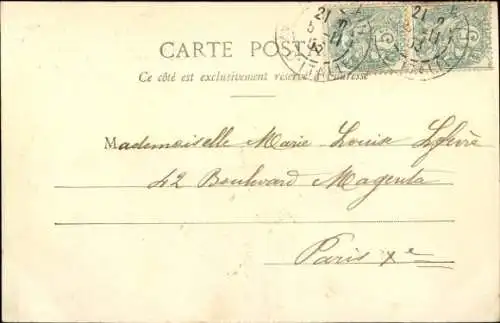 CARTE POSTALE
Ce côté est exclusivement réservé à l'adresse
Mademoiselle Marie-Louise Lefèvre
42 Boulevard Magenta
Paris Xe